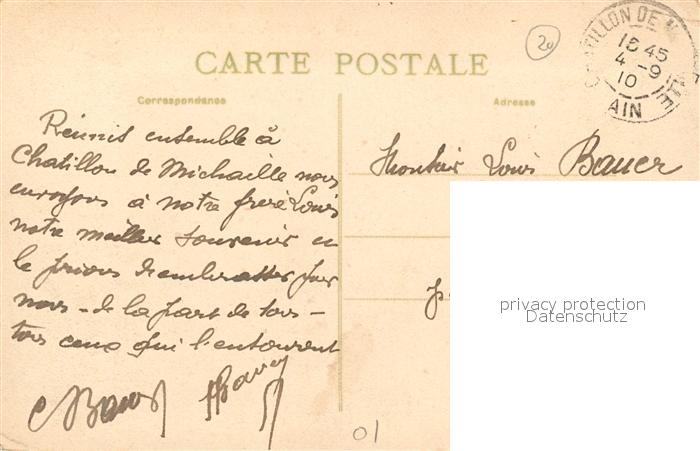 20
CHATILLON DE MICHAILLE
15 45
4 - 9
10
AIN
CARTE POSTALE
Correspondance
Adresse
Réunis ensemble à
Chatillon de Michaille nous
envoyons à notre frère Louis
notre meilleur souvenir en
le priant d'embrasser pour
nous - de la part de tous -
tous ceux qui l'entourent
Monsieur Louis Bauer
privacy protection
Datenschutz
01